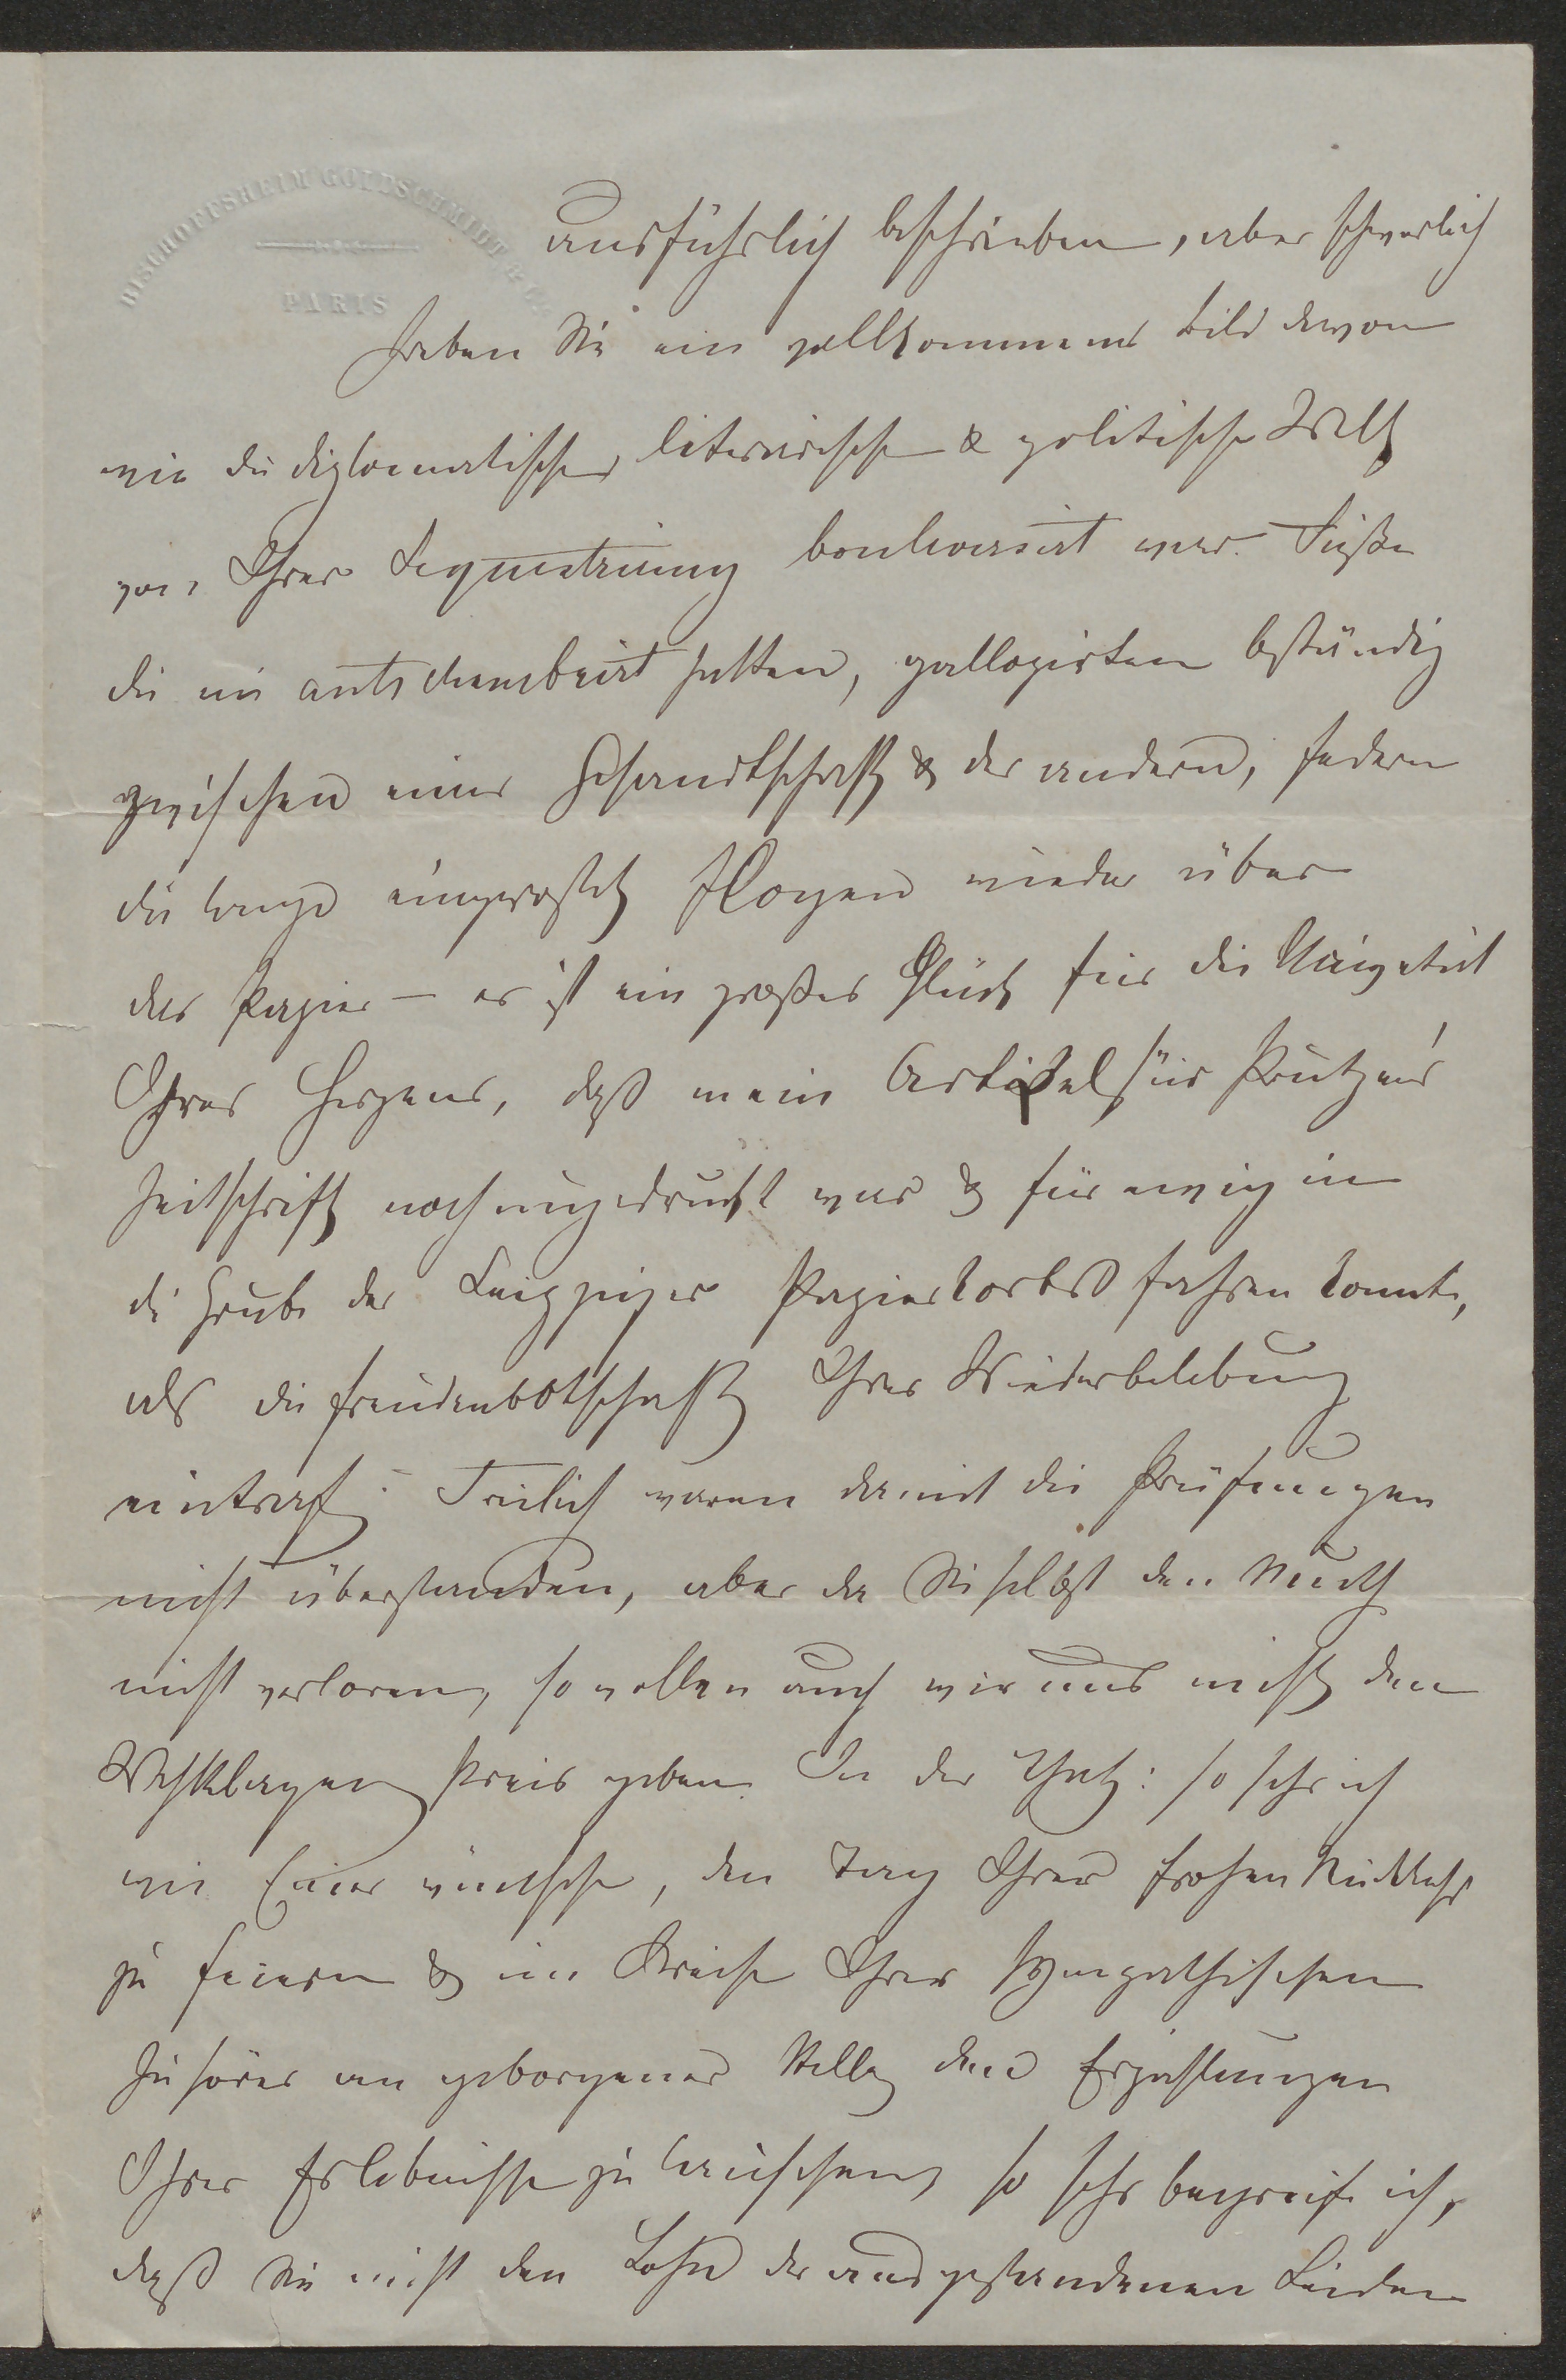 BISCHOFFSHEIM GOLDSCHMIDT & Cie
PARIS
ausführlich beschrieben, aber schwerlich
haben Sie ein vollkommenes Bild davon
wie die diplomatische, literarische & politische Welt
von Ihrer Sequestrirung bouleversirt war. Füße
die nie antichambrirt hatten, gallopirten beständig
zwischen einer Gesandtschaft & der andern, Federn
die lange eingerostet flogen wieder über
das Papier – es ist ein großes Glück für die
Ihres Herzens, daß mein Artikel für Prutzens'
Zeitschrift noch ungedruckt war & für ewig in
die Grube des Leipziger Papierkorbs fahren konnte,
als die Freudenbotschaft Ihrer Wiederbelebung
eintraf. Freilich waren damit die Prüfungen
nicht überstanden, aber da Sie selbst den Muth
nicht verloren, so wollen auch wir uns nicht dem
Wehklagen Preis geben. In der That: so sehr ich
wie Einer wünsche, den Tag Ihrer frohen Rückkehr
zu feiern & im Kreise Ihrer sympathischen
Zuhörer an geborgener Stelle den Erzählungen
Ihrer Erlebnisse zu lauschen, so sehr begreife ich,
daß Sie nicht den Lohn der ausgestandenen Leiden